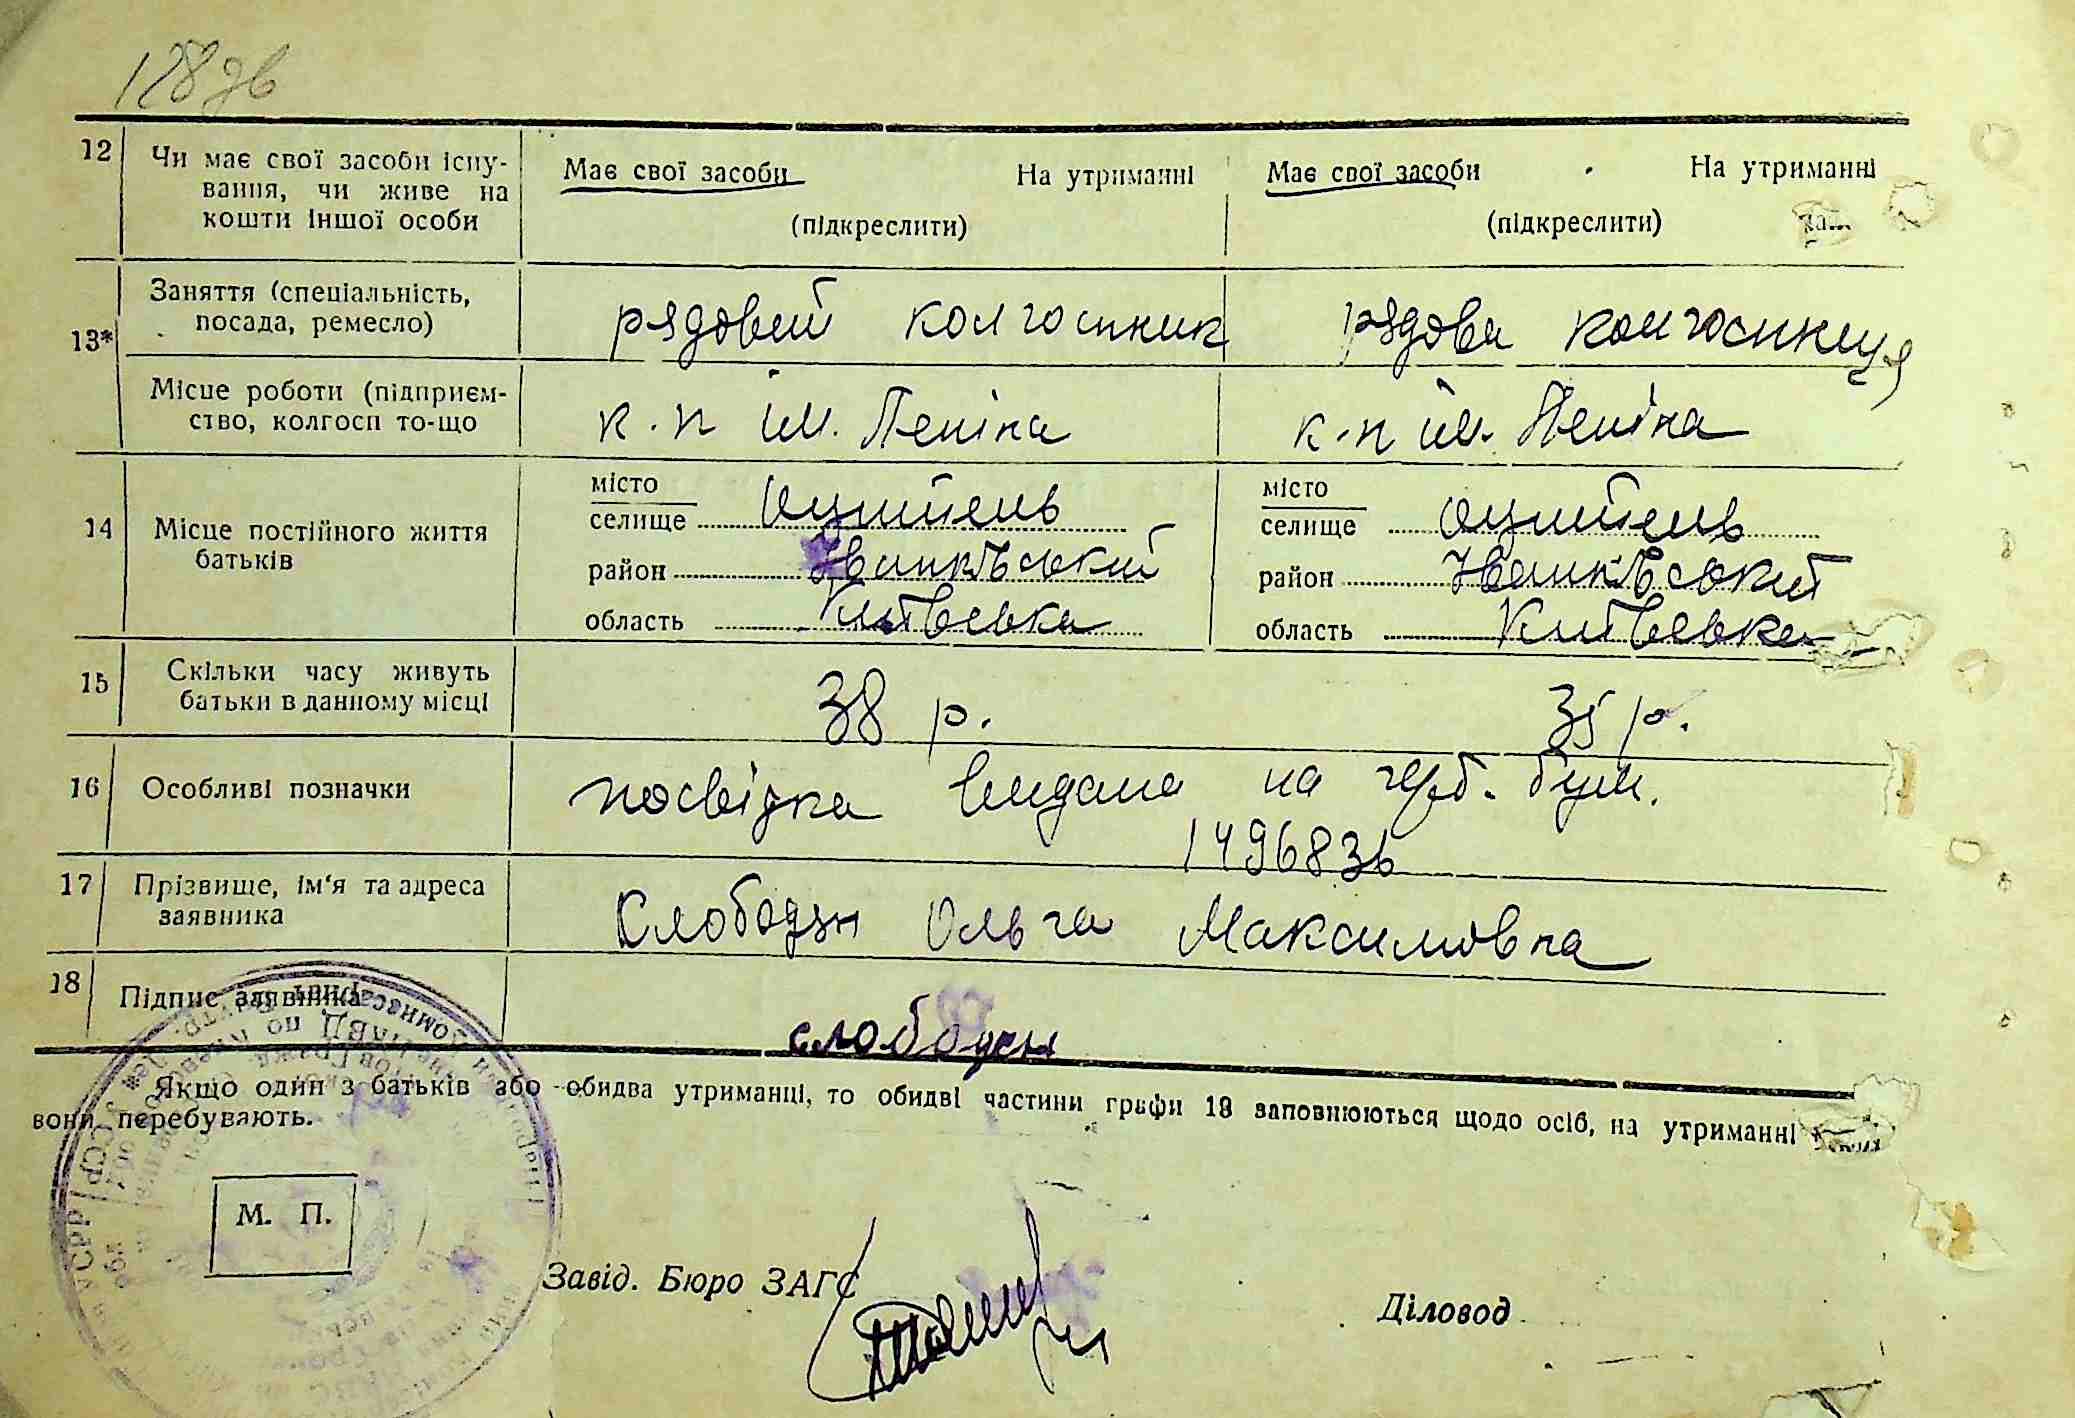 128 зв
12 Чи має свої засоби існу- Має свої засоби На утриманні Має свої засоби На утриманні
вання, чи живе на
кошти іншої особи (підкреслити) (підкреслити)
13* Заняття (спеціальність,
посада, ремесло) рядовий колгоспник рядова колгоспниця
Місце роботи (підприєм-
ство, колгосп то-що к.п ім. Леніна к.п ім. Леніна
14 Місце постійного життя
батьків
місто місто
селище Оцитель селище Оцитель
район Іванківський район Іванківський
область Київська область Київська
15 Скільки часу живуть
батьки в данному місці 38 р. 35 р.
16 Особливі позначки посвідка видана на герб. бум.
149683ь
17 Прізвище, ім‘я та адреса
заявника Слободян Ольга Максимовна
18 Підпис заявника
слободян
Якщо один з батьків або обидва утриманці, то обидві частини графи 13 заповнюються щодо осіб, на утриманні
вони перебувають.
М. П.
Завід. Бюро ЗАГС
Діловод